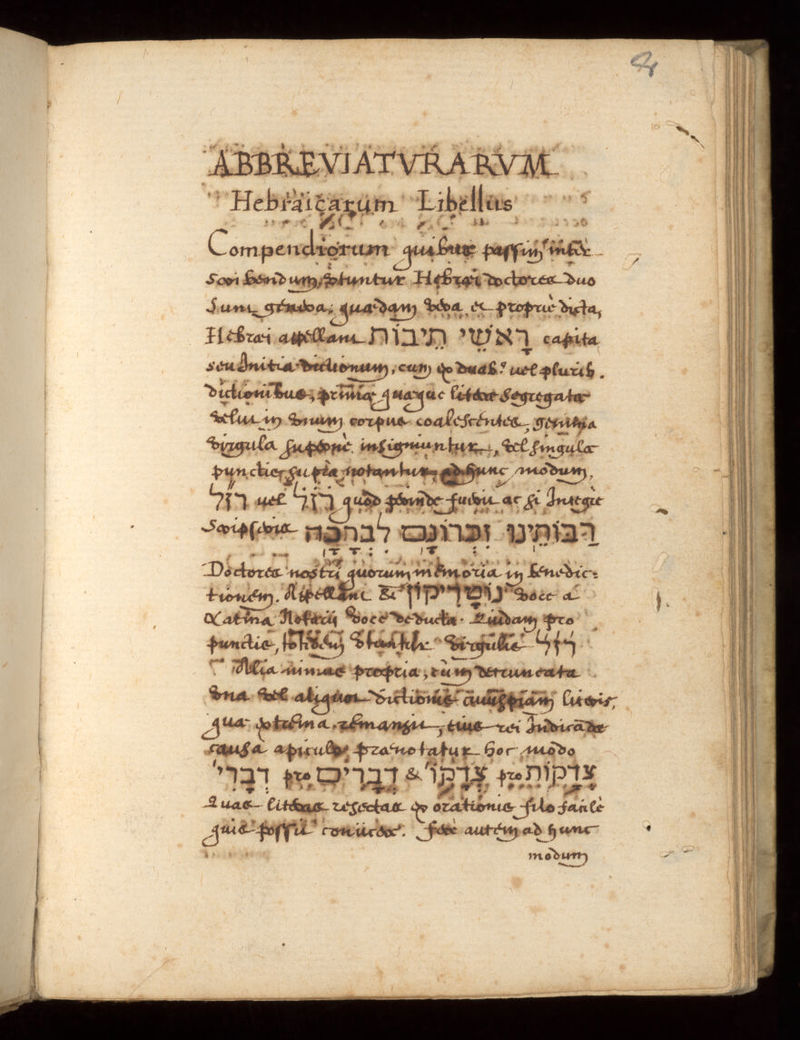 ABBREVIATVRARVM
Hebraicarum Libellus
Compendiorum quibus passim inter
scribendum, vtuntur Hebræi doctores duo
Sunt genera: quædam vera et propriè dicta,
Hebræi appellant רָאשֵׁי תֵיבוֹת capita
seu Initia dictionum, cum ex duab. vel plurib.
dictionibus, primæ quæque literæ segregatæ
velut in vnum corpus coalescentes, gemina
virgula supernè insigniuntur, vel singula
punctis supra notantur ad hunc modum,
רז״ל vel רז״ל quod perinde fuerit ac si Integrè
Scripseris רַבּוֹתֵינוּ זכרונם לברכה
Doctores nostri quorum memoria in benedic:
tionem. Appellant & נוֹטָרִיקוֹן voce a
Latina Notarij voce deducta. Quidam pro
punctis, totidem vtuntur virgulis רזל
Alia minus propria, cùm detruncata
vna vel aliquot dictionis cuiuspiam literis,
quæ extrema remansit, eius rei Indicandæ
causa apiculo prænotatur hoc modo
צִדְקוֹת pro צִדְקוֹ׳ & דְבָרִים pro דְבָרִי׳
Quas literas resectas ex orationis filo facilè
quis possit conijcere. Ferè autem ad hunc
modum